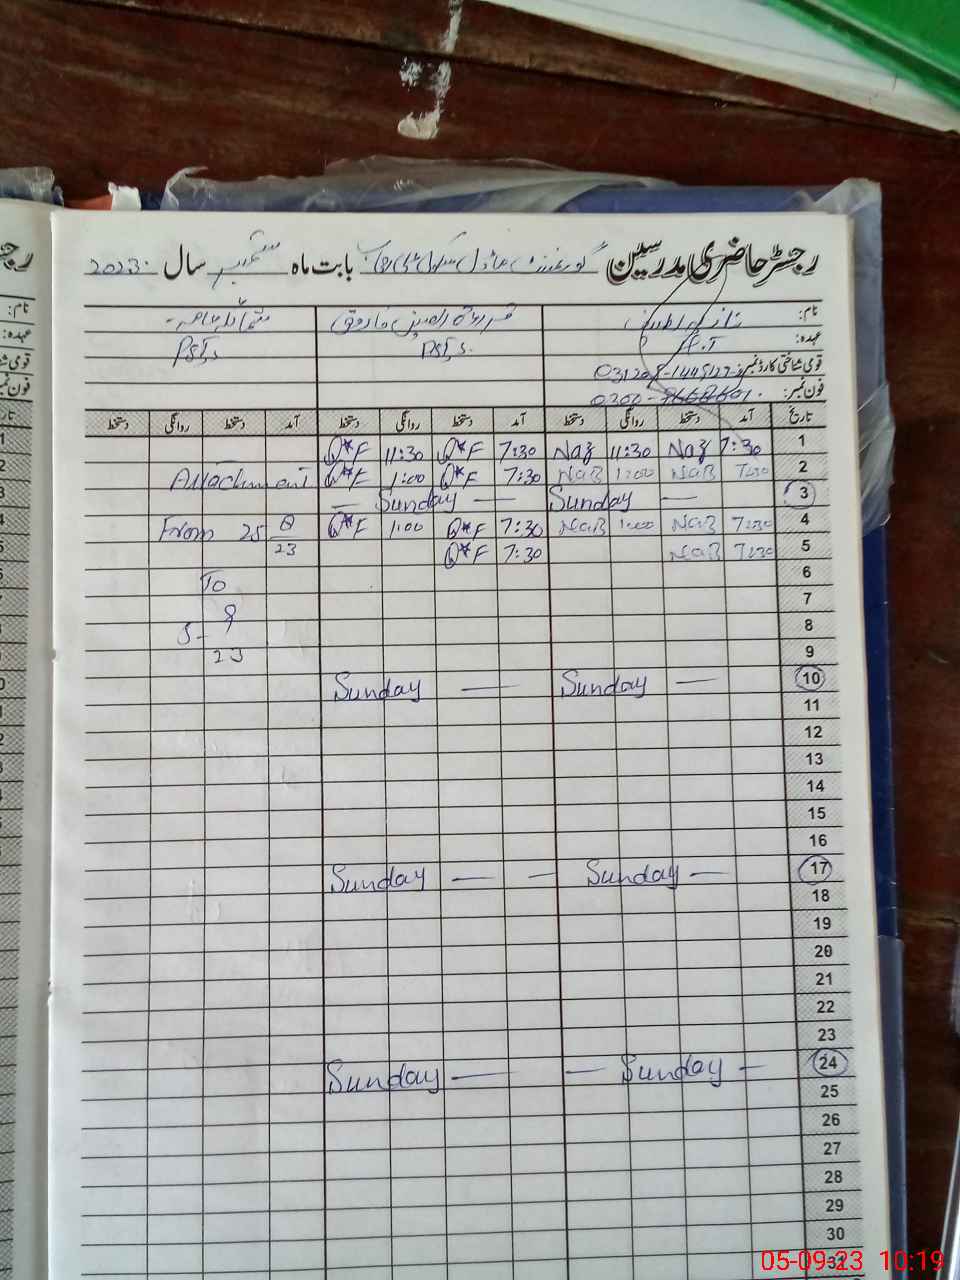 رجسٹر حاضری مدرسین گورنمنٹ ماڈل سکول بابت ماہ ستمبر سال 2023
نام:
عہدہ: P.S.T PST
قومی شناختی کارڈ نمبر:
فون نمبر: 0300-
تاریخ آمد دستخط روانگی دستخط آمد دستخط روانگی دستخط آمد دستخط روانگی دستخط
Q*F 11:30 Q*F 7:30 Naz 11:30 Naz 7:30 1
Attachment Q*F 1:00 Q*F 7:30 NaB 1:00 NaB 7:30 2
— Sunday — Sunday — 3
From 25 8/23 Q*F 1:00 Q*F 7:30 NaB 1:00 NaB 7:30 4
Q*F 7:30 NaB 7:30 5
To 6
7
5- 9 8
23 9
Sunday — Sunday — 10
11
12
13
14
15
16
Sunday — — Sunday — 17
18
19
20
21
22
23
Sunday — — Sunday — 24
25
26
27
28
29
30
31
05-09-23 10:19